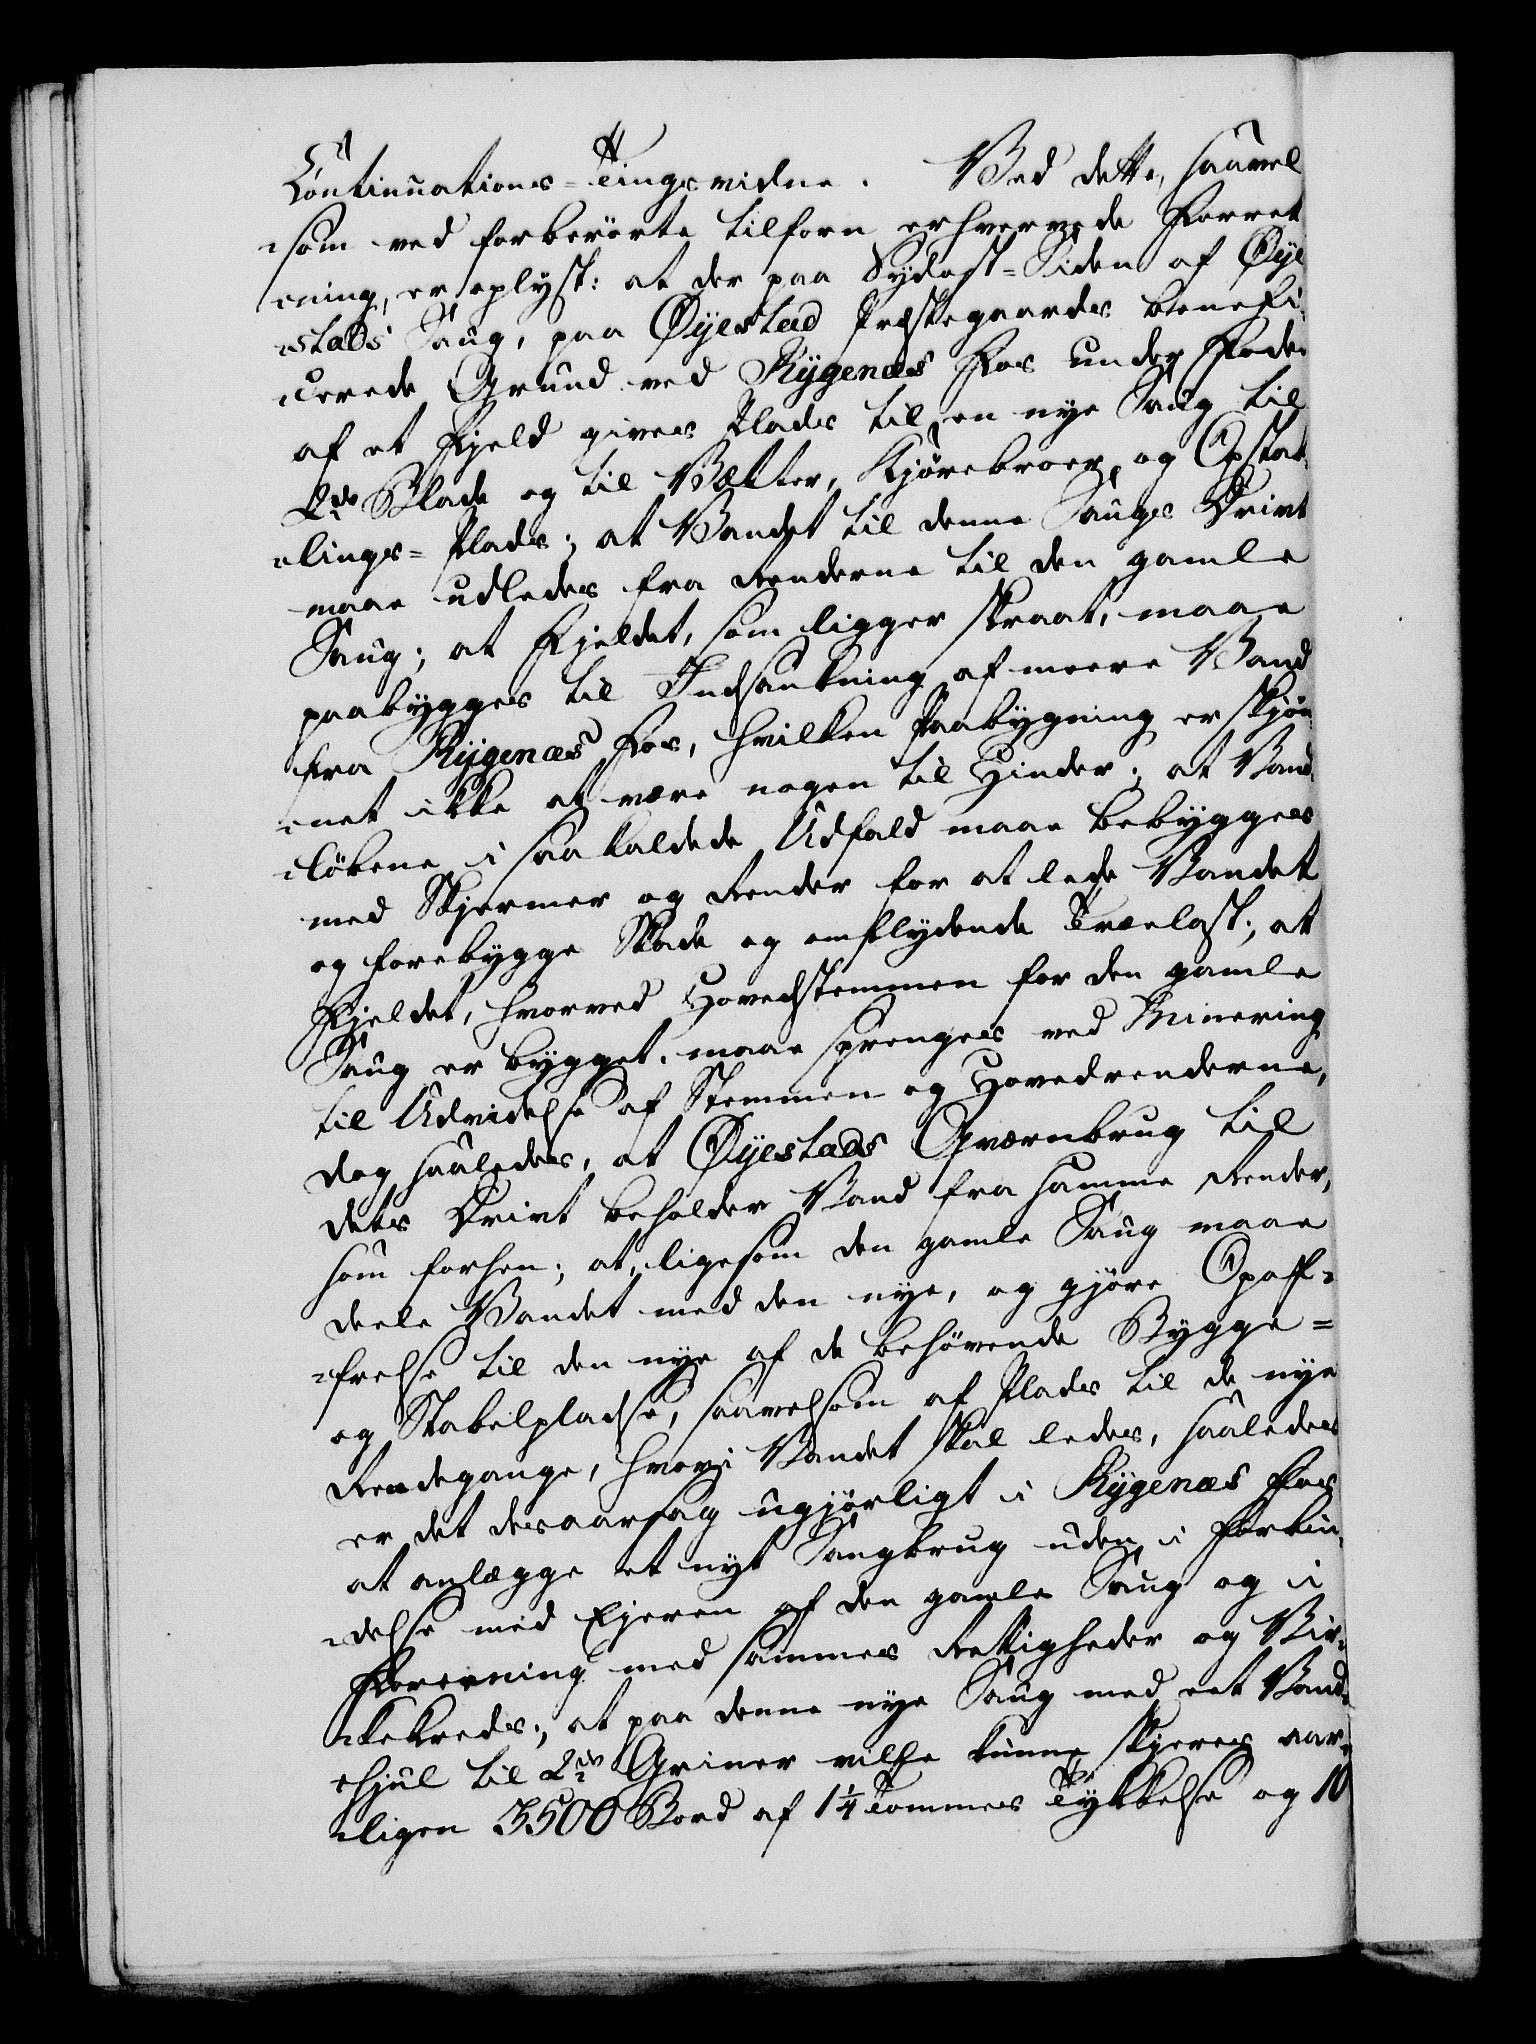 Continuations-Tingsvidne. Ved dette, saavel
som ved forberörte tilforn erhvervede Forret
ning, er oplyst: at der paa Sydost-Siden af Øÿe
stads Saug, paa Øÿestad Præstegaardes benefi
cerede Grund ved Rÿgenæs Fos under Foden
af et Fjeld gives Plads til en nye Saug til
2de Blade og til Vælter, Kjörebroer og Opstab
lings-Plads; at Vandet til denne Saugs Drivt
maae udledes fra Renderne til den gamle
Saug; at Fjeldet, som ligger skraat, maae
paabygges til Indsankning af meere Vand
fra Rÿgenæs Fos, hvilken Paabygning er skjön
net ikke at være nogen til Hinder; at Vand
löbene i saakaldede Udfald maae bebygges
med Skjermer og Render for at lede Vandet
og forebygge Skade og omflydende Trælast; at
Fjeldet, hvorved Hovedstemmen for den gamle
Saug er bygget, maae sprenges ved Minering
til Udvidelse af Stemmen og Hovedrenderne,
dog saaledes, at Øÿestads Qværnbrug til
dets Drivt beholder Vand fra samme Render,
som forhen; at, ligesom den gamle Saug maae
deele Vandet med den nye, og gjöre Opof-
frelse til den nye af de behövende Bygge-
og Stabelpladse, saavelsom af Plads til de nye
Rendegange, hvori Vandet skal ledes, saaledes
er det desaarsag ugjörligt i Rÿgenæs Fos
at anlægge et nyt Saugbrug uden i Forbin
delse med Ejeren af den gamle Saug og i
Forening med sammes Rettigheder og Vir-
kekreds; at paa denne nye Saug med eet Vand
hjul til 2de Griner vilde kunne skjæres aar-
ligen 3500 Bord af 1 1/4 Tommes Tykkelse og 10